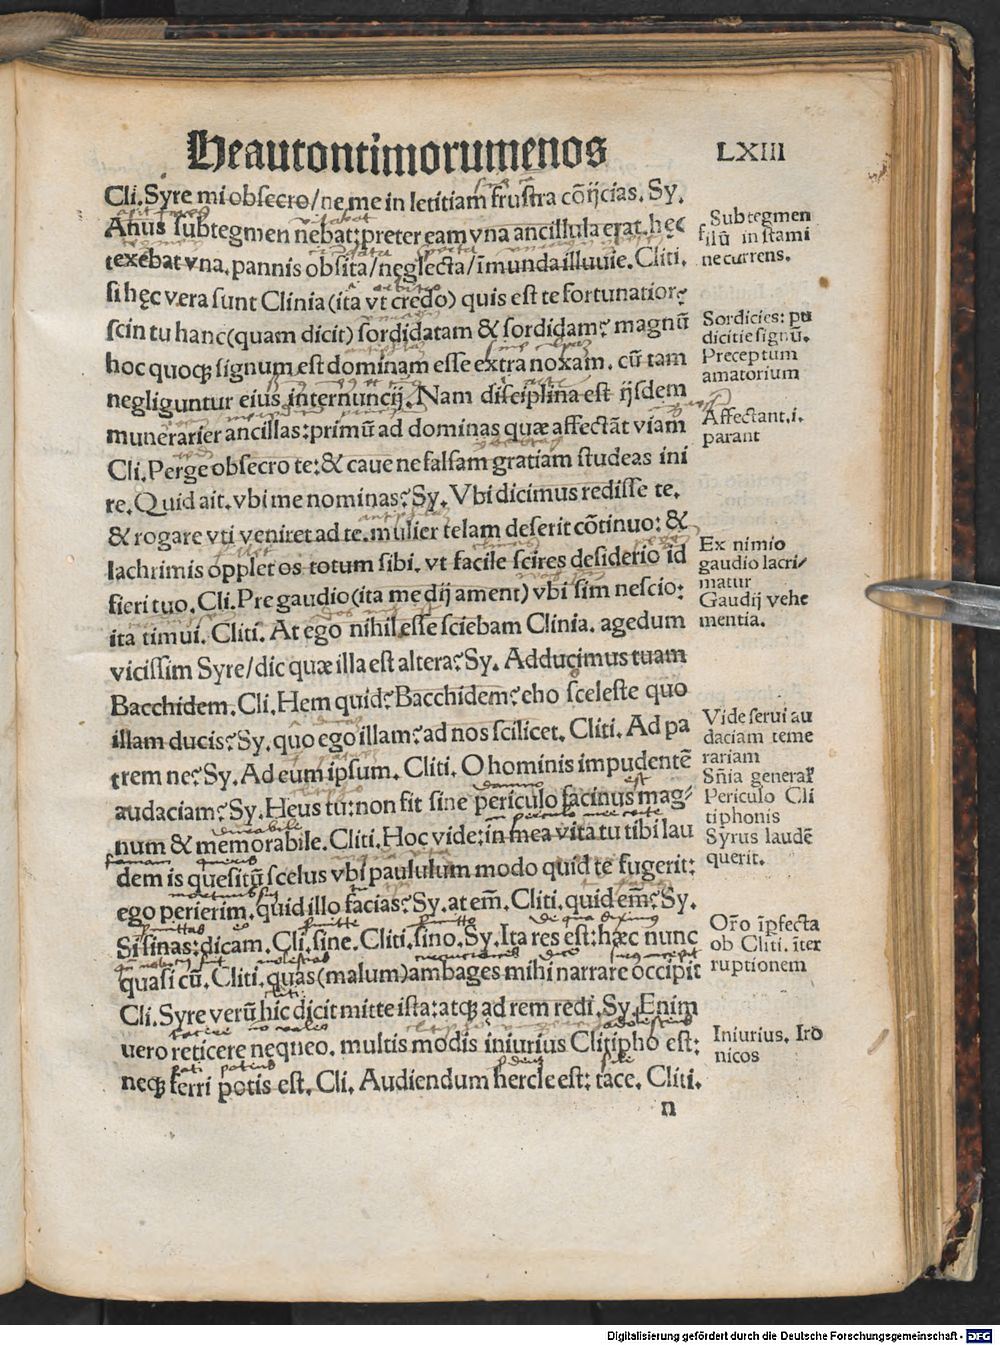 Heautontimorumenos LXIII
Cli. Syre mi obsecro/ne me in letitiam frustra cõijcias. Sy.
Anus subtegmen nebat: preter eam vna ancillula erat. hęc
texebat vna. pannis obsita/neglecta/ĩmunda illuuie. Cliti.
si hęc vera sunt Clinia (ita vt credo) quis est te fortunatior?
scin tu hanc (quam dicit) sordidatam & sordidam? magnũ
hoc quoqȝ signum est dominam esse extra noxam. cũ tam
negliguntur eius internuncij. Nam disciplina est ijsdem
munerarier ancillas: primũ ad dominas quæ affectãt viam
Cli. Perge obsecro te: & caue ne falsam gratiam studeas ini
re. Quid ait. vbi me nominas? Sy. Vbi dicimus redisse te.
& rogare vti veniret ad te. mulier telam deserit cõtinuo: &
lachrimis opplet os totum sibi. vt facile scires desiderio id
fieri tuo. Cli. Pre gaudio (ita me dij ament) vbi sim nescio:
ita timui. Cliti. At ego nihil esse sciebam Clinia. agedum
vicissim Syre/dic quæ illa est altera? Sy. Adducimus tuam
Bacchidem. Cli. Hem quid? Bacchidem? eho sceleste quo
illam ducis? Sy. quo ego illam? ad nos scilicet. Cliti. Ad pa
trem ne? Sy. Ad eum ipsum. Cliti. O hominis impudentẽ
audaciam? Sy. Heus tu: non fit sine periculo facinus mag⸗
num & memorabile. Cliti. Hoc vide: in mea vita tu tibi lau
dem is quesitũ scelus vbi paululum modo quid te fugerit:
ego perierim. quid illo facias? Sy. at em̃. Cliti. quid em̃? Sy.
Si sinas: dicam. Cli. sine. Cliti. sino. Sy. Ita res est: hæc nunc
quasi cũ. Cliti. quas (malum) ambages mihi narrare occipit
Cli. Syre verũ hic dicit mitte ista: atqȝ ad rem redi. Sy. Enim
uero reticere nequeo. multis modis iniurius Clitipho est:
neqȝ ferri potis est. Cli. Audiendum hercle est: tace. Cliti.
n
Subtegmen
filũ in stami
ne currens.
Sordicies: pu
dicitie signũ.
Preceptum
amatorium
Affectant.i.
parant
Ex nimio
gaudio lacri⸗
matur
Gaudij vehe
mentia.
Vide serui au
daciam teme
rariam
Sñia general
Periculo Cli
tiphonis
Syrus laudẽ
querit.
Orõ ĩperfecta
ob Cliti. ĩter
ruptionem
Iniurius. Iro
nicos
Digitalisierung gefördert durch die Deutsche Forschungsgemeinschaft - DFG